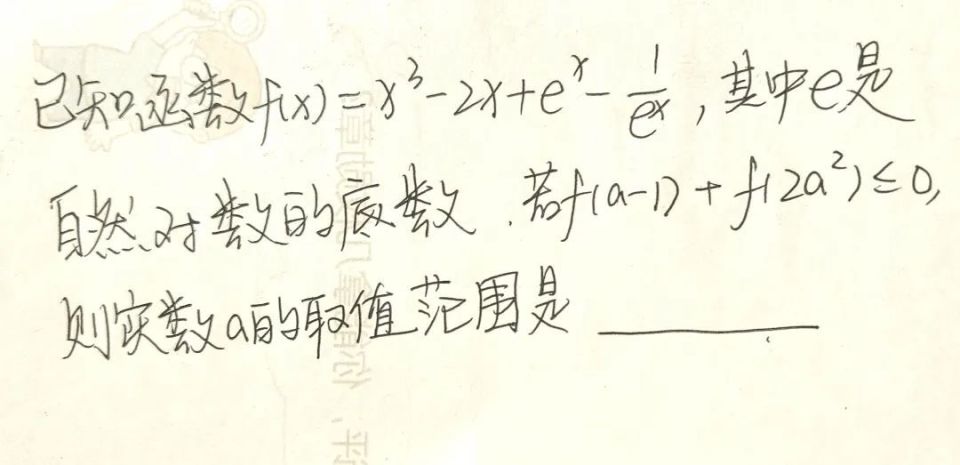 已知函数f(x)=x³-2x+eˣ-1/eˣ,其中e是
自然对数的底数.若f(a-1)+f(2a²)≤0,
则实数a的取值范围是______